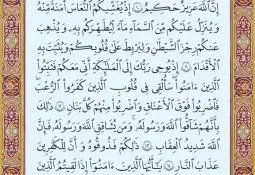 إِنَّ ٱللَّهَ عَزِيزٌ حَكِيمٌ ۝ إِذْ يُغَشِّيكُمُ ٱلنُّعَاسَ أَمَنَةً مِّنْهُ
وَيُنَزِّلُ عَلَيْكُم مِّنَ ٱلسَّمَآءِ مَآءً لِّيُطَهِّرَكُم بِهِۦ وَيُذْهِبَ
عَنكُمْ رِجْزَ ٱلشَّيْطَٰنِ وَلِيَرْبِطَ عَلَىٰ قُلُوبِكُمْ وَيُثَبِّتَ بِهِ
ٱلْأَقْدَامَ ۝ إِذْ يُوحِى رَبُّكَ إِلَى ٱلْمَلَٰٓئِكَةِ أَنِّى مَعَكُمْ فَثَبِّتُوا۟
ٱلَّذِينَ ءَامَنُوا۟ سَأُلْقِى فِى قُلُوبِ ٱلَّذِينَ كَفَرُوا۟ ٱلرُّعْبَ
فَٱضْرِبُوا۟ فَوْقَ ٱلْأَعْنَاقِ وَٱضْرِبُوا۟ مِنْهُمْ كُلَّ بَنَانٍ ۝ ذَٰلِكَ
بِأَنَّهُمْ شَآقُّوا۟ ٱللَّهَ وَرَسُولَهُۥ وَمَن يُشَاقِقِ ٱللَّهَ وَرَسُولَهُۥ فَإِنَّ
ٱللَّهَ شَدِيدُ ٱلْعِقَابِ ۝ ذَٰلِكُمْ فَذُوقُوهُ وَأَنَّ لِلْكَٰفِرِينَ
عَذَابَ ٱلنَّارِ ۝ يَٰٓأَيُّهَا ٱلَّذِينَ ءَامَنُوٓا۟ إِذَا لَقِيتُمُ ٱلَّذِينَ